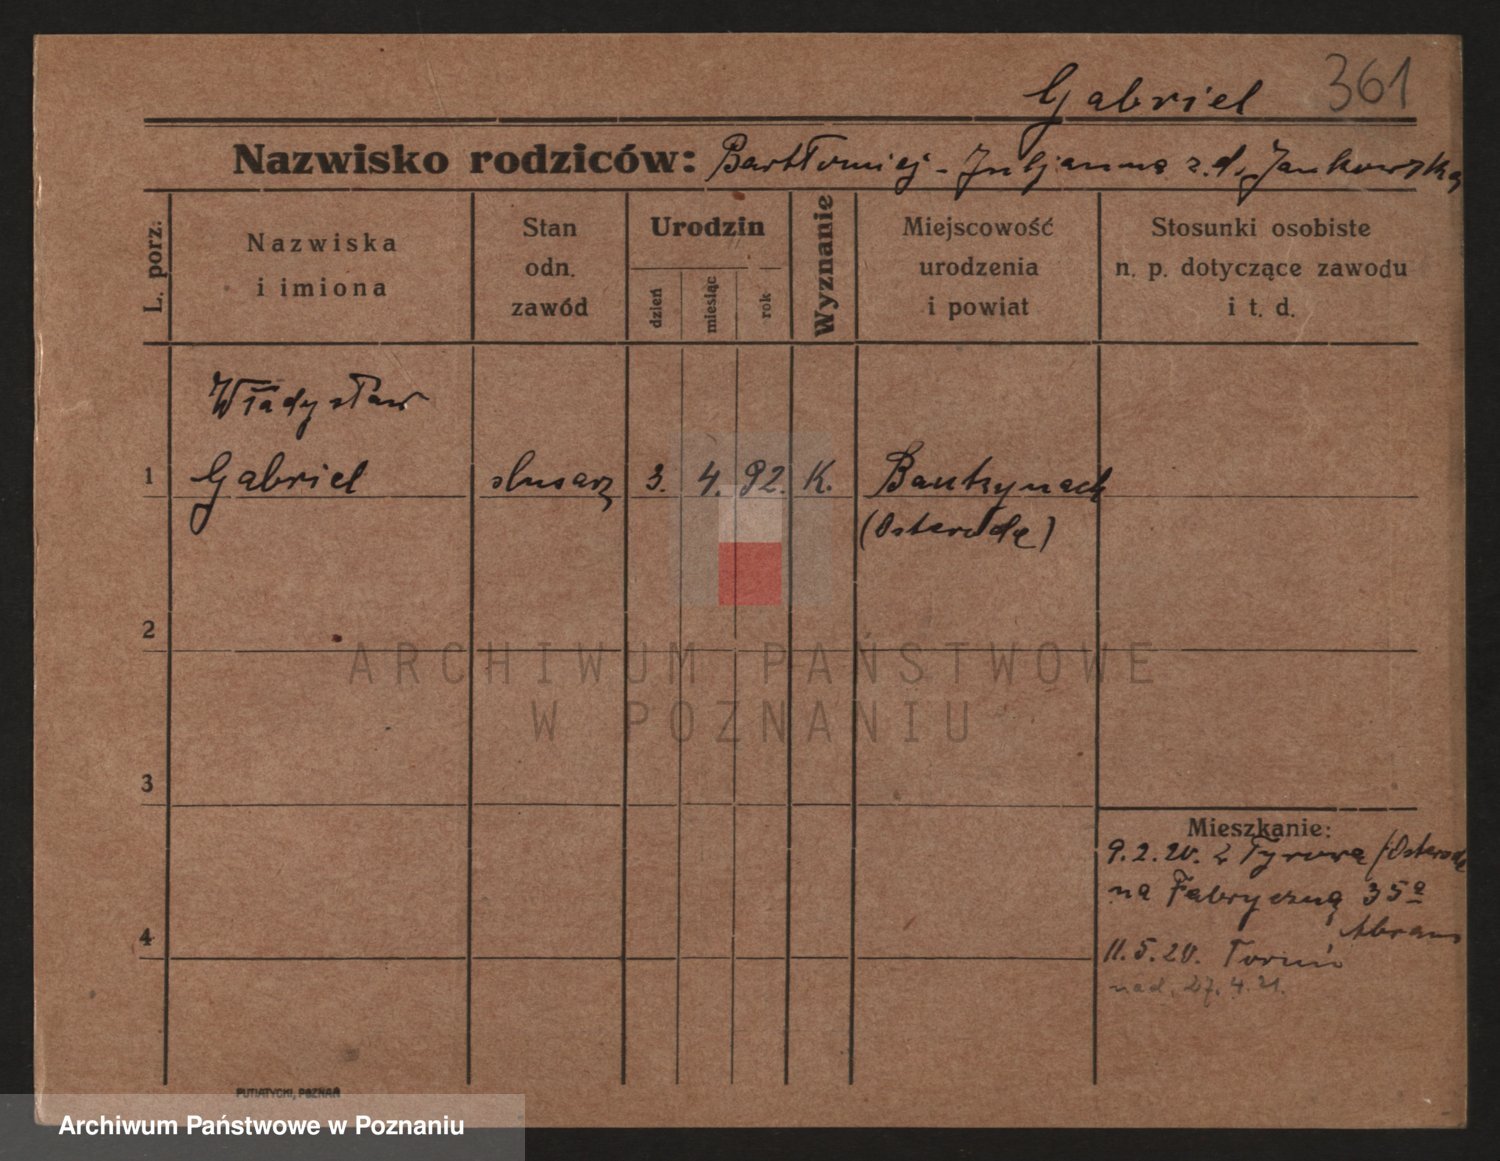 Gabriel 361
Nazwisko rodziców: Bartłomiej - Juljanna z.d. Jankowska
L. porz.
Nazwiska
i imiona
Stan
odn.
zawód
Urodzin
dzień
miesiąc
rok
Wyznanie
Miejscowość
urodzenia
i powiat
Stosunki osobiste
n. p. dotyczące zawodu
i t. d.
Władysław
1 Gabriel slusarz 3. 4. 92. K.
(Osteroda)
2
3
4
Mieszkanie:
9.2.20. z Tyrowa (Osteroda
na Fabryczną 35a
Abram
11.5.20. Toruń
nad. 27.4.21.
PUTIATYCKI, POZNAŃ
ARCHIWUM PAŃSTWOWE
W POZNANIU
Archiwum Państwowe w Poznaniu